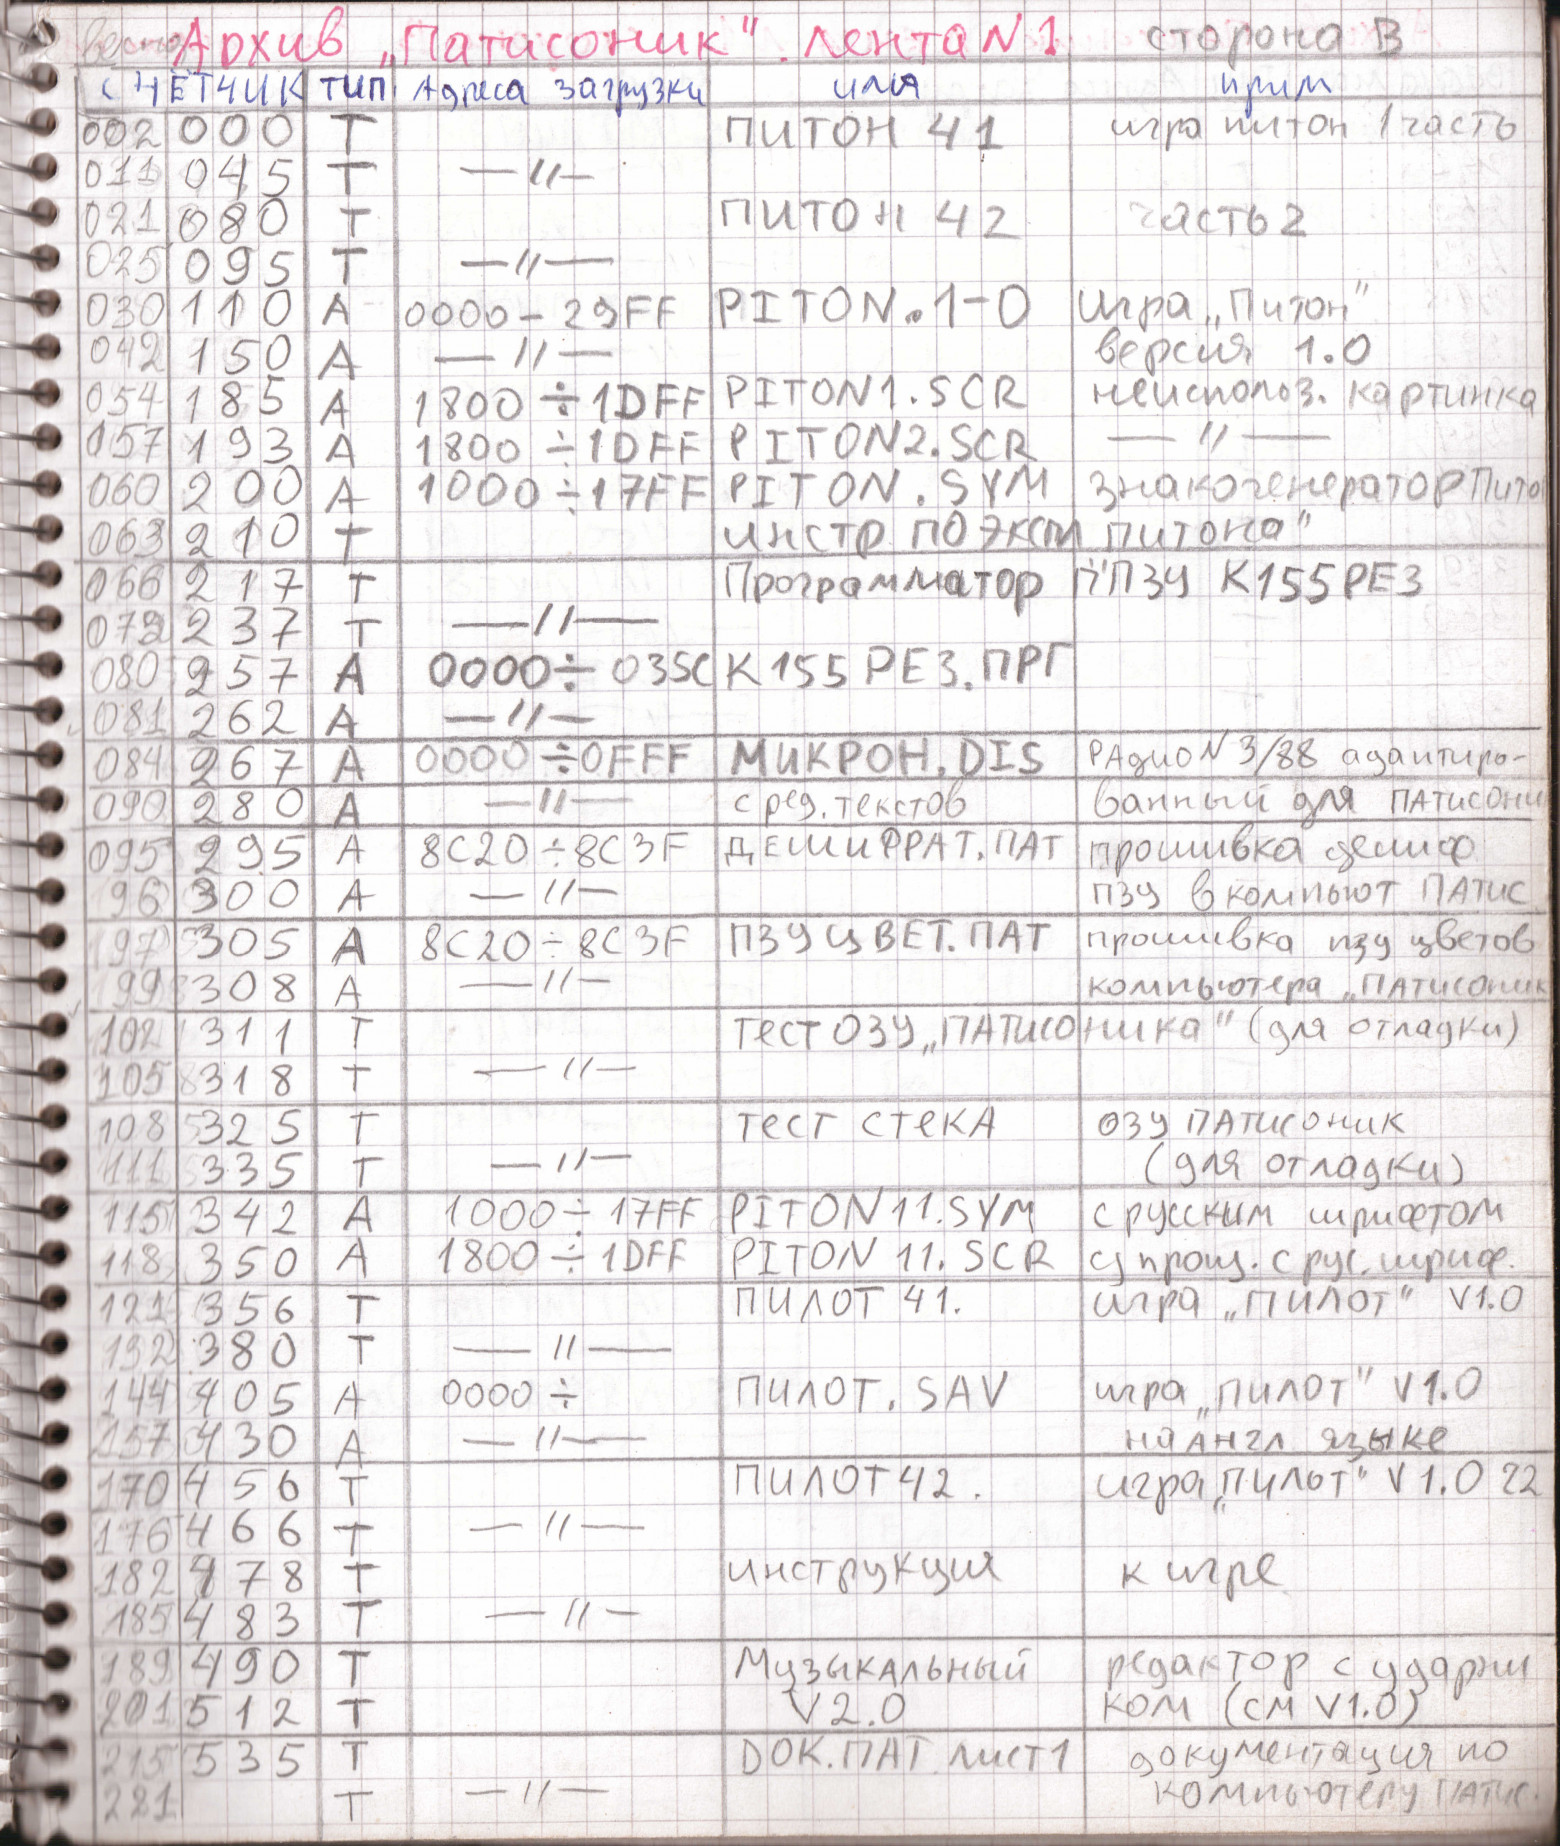 Архив „Патисоник". лента N1 сторона В
СЧЕТЧИК ТИП Адреса загрузки имя прим
002 000 Т ПИТОН 41 игра питон 1 часть
011 045 Т —//—
021 080 Т ПИТОН 42 часть 2
025 095 Т —//—
030 110 А 0000 – 29FF PITON.1-0 игра „Питон"
042 150 А —//— версия 1.0
054 185 А 1800 ÷ 1DFF PITON1.SCR неиспольз. картинка
057 193 А 1800 ÷ 1DFF PITON2.SCR —//—
060 200 А 1000 ÷ 17FF PITON.SYM знакогенератор Питон
063 210 Т инстр по экспл питона"
066 217 Т Программатор ППЗУ К155РЕ3
072 237 Т —//—
080 257 А 0000 ÷ 035C К155РЕ3.ПРГ
081 262 А —//—
084 267 А 0000 ÷ 0FFF МИКРОН.DIS РАдио N 3/88 адаптиро-
090 280 А —//— с ред. текстов ванный для ПАТИСОНИ
095 295 А 8C20 ÷ 8C3F ДЕШИФРАТ.ПАТ прошивка дешиф
96 300 А —//— ПЗУ в компьют ПАТИС
197 305 А 8C20 ÷ 8C3F ПЗУЦВЕТ.ПАТ прошивка пзу цветов
199 308 А —//— компьютера „ПАТИСОНИК
102 311 Т тест ОЗУ „ПАТИСОНИКА" (для отладки)
105 318 Т —//—
108 325 Т тест стека ОЗУ ПАТИСОНИК
111 335 Т —//— (для отладки)
115 342 А 1000 ÷ 17FF PITON11.SYM с русским шрифтом
118 350 А 1800 ÷ 1DFF PITON 11.SCR с рус. шриф.
121 356 Т ПИЛОТ 41. игра „ПИЛОТ" V1.0
132 380 Т —//—
144 405 А 0000 ÷ ПИЛОТ.SAV игра „ПИЛОТ" V1.0
157 430 А —//— на англ языке
170 456 Т ПИЛОТ 42. игра „ПИЛОТ" V1.0 ч2
176 466 Т —//—
182 478 Т инструкция к игре
185 483 Т —//—
189 490 Т Музыкальный редактор с ударни
201 512 Т V2.0 ком (см V1.0)
215 535 Т DOK.ПАТ лист1 документация по
221 Т —//— компьютеру ПАТИС.